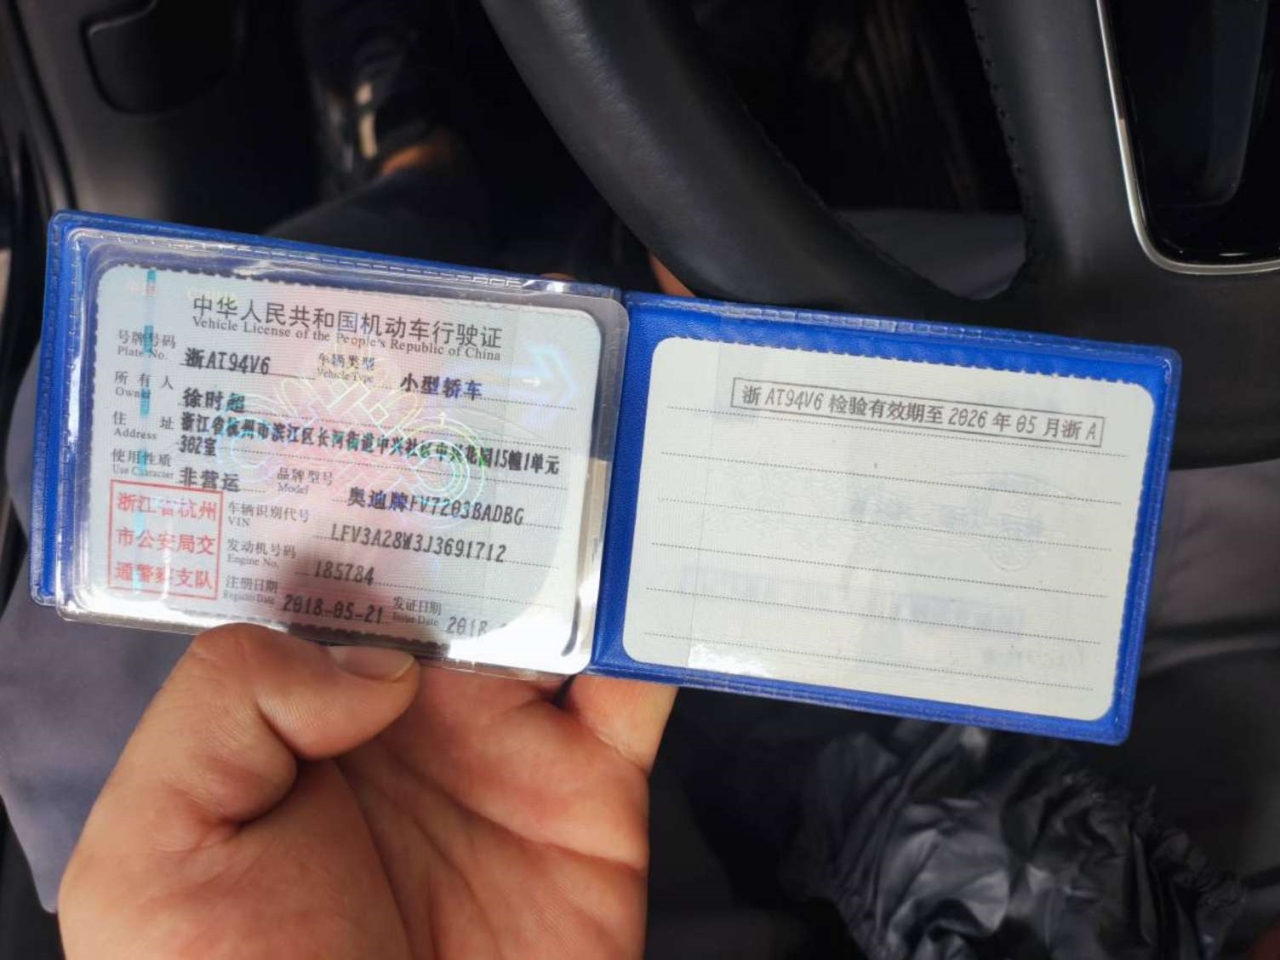 中华人民共和国机动车行驶证
Vehicle License of the People's Republic of China
号牌号码 浙AT94V6 车辆类型 小型轿车
Plate No. Vehicle Type
所有人 徐时超
Owner
住址 浙江省杭州市滨江区长河街道中兴社区中兴花园15幢1单元
Address 302室
使用性质 非营运 品牌型号 奥迪牌FV7203BADBG
Use Character Model
浙江省杭州
市公安局交
通警察支队
车辆识别代号 LFV3A28W3J3691712
VIN
发动机号码 185784
Engine No.
注册日期 2018-05-21 发证日期 2018
Register Date Issue Date
浙AT94V6检验有效期至2026年05月浙A